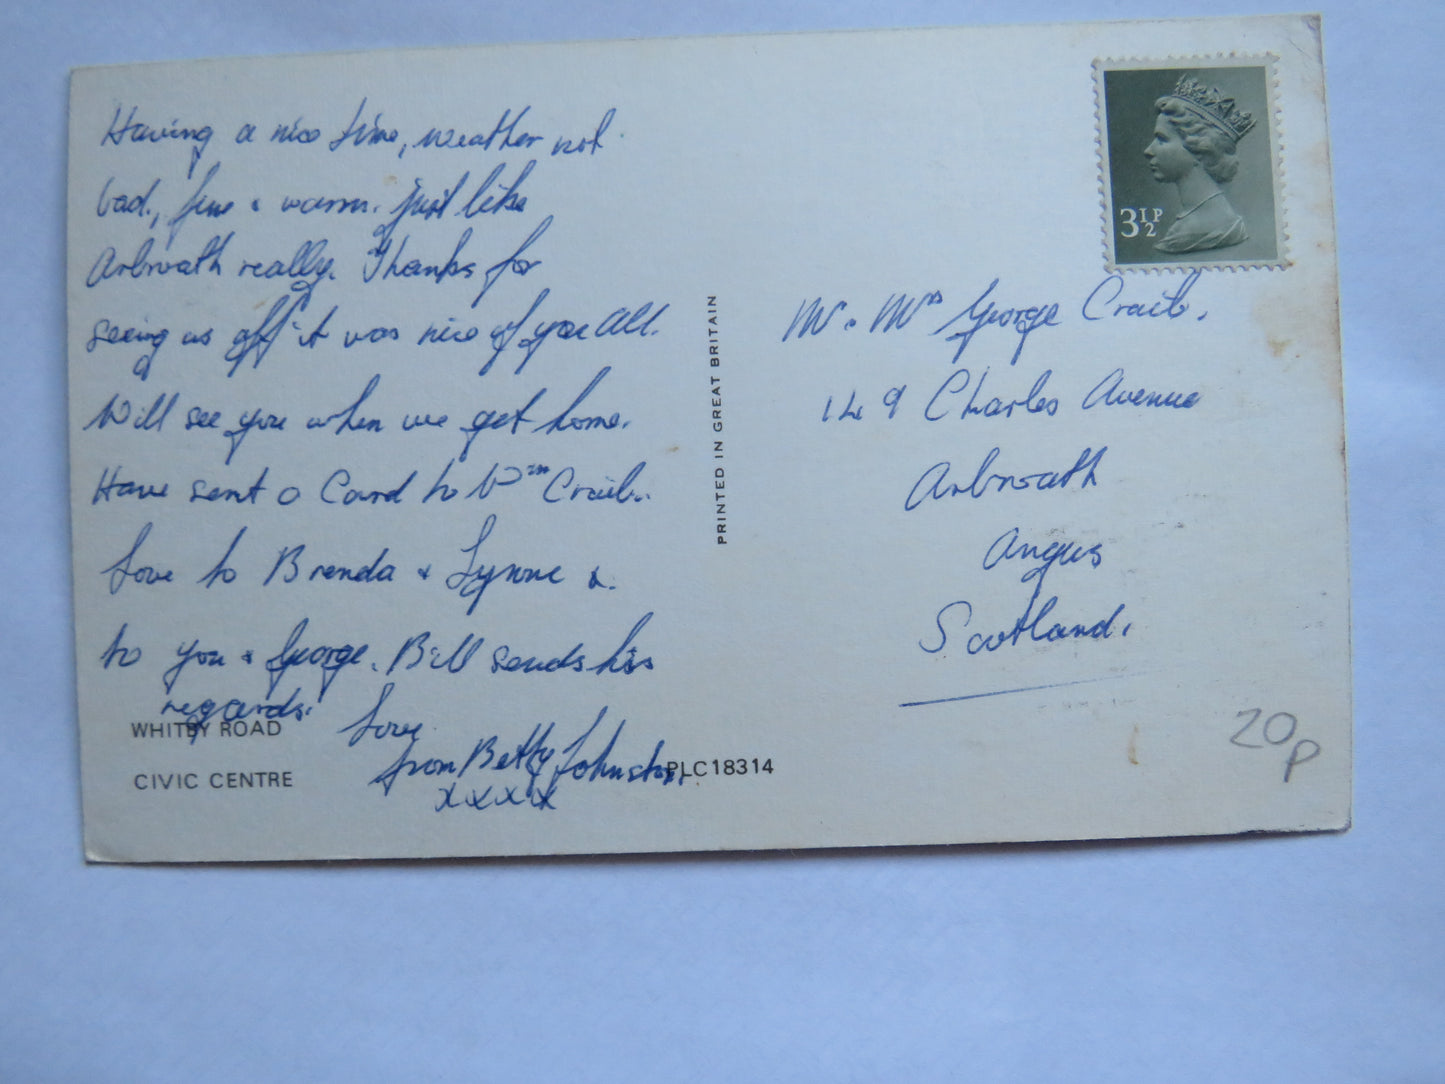 Having a nice time, weather not
bad., fine & warm. just like
Arbroath really. Thanks for
seeing us off it was nice of you all.
Will see you when we get home.
Have sent a Card to Wm Craib.
Love to Brenda & Lynne &
to you & George. Bill sends his
regards.
Love
from Betty Johnston.
xxxx
WHITBY ROAD
CIVIC CENTRE
PLC18314
PRINTED IN GREAT BRITAIN
3½P
Mr. Mrs George Craib.
149 Charles Avenue
Arbroath
Angus
Scotland.
20p